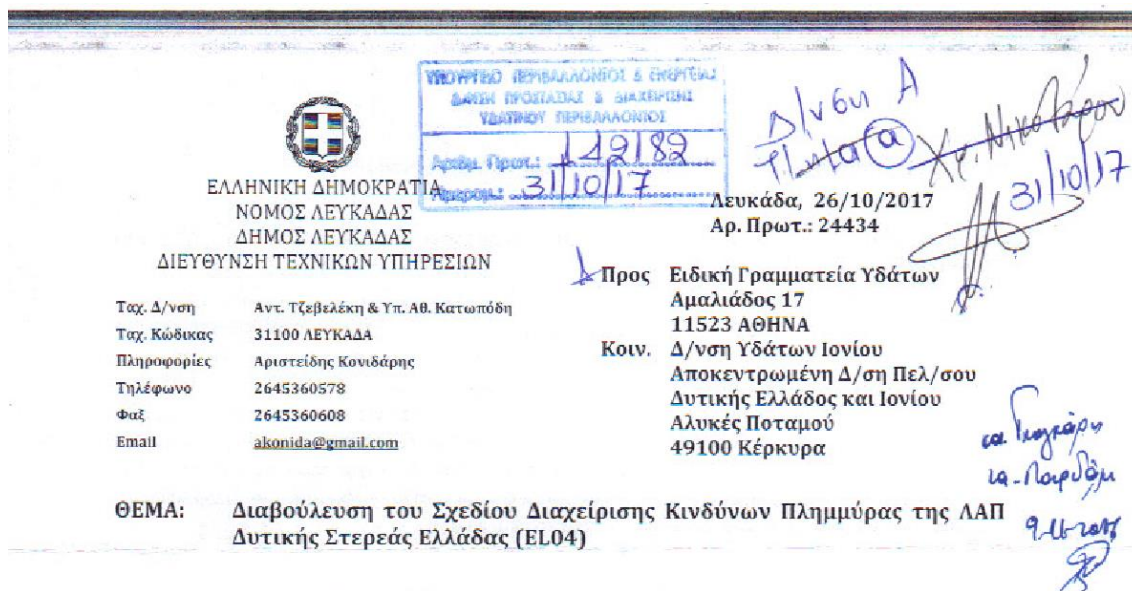 ΥΠΟΥΡΓΕΙΟ ΠΕΡΙΒΑΛΛΟΝΤΟΣ & ΕΝΕΡΓΕΙΑΣ
Δ/ΝΣΗ ΠΡΟΣΤΑΣΙΑΣ & ΔΙΑΧΕΙΡΙΣΗΣ
ΥΔΑΤΙΝΟΥ ΠΕΡΙΒΑΛΛΟΝΤΟΣ
Αριθμ. Πρωτ.:
31/10/17
Δ/νση Α
31/10/17
ΕΛΛΗΝΙΚΗ ΔΗΜΟΚΡΑΤΙΑ
ΝΟΜΟΣ ΛΕΥΚΑΔΑΣ
ΔΗΜΟΣ ΛΕΥΚΑΔΑΣ
ΔΙΕΥΘΥΝΣΗ ΤΕΧΝΙΚΩΝ ΥΠΗΡΕΣΙΩΝ
Ταχ. Δ/νση Αντ. Τζεβελέκη & Υπ. Αθ. Κατωπόδη
Ταχ. Κώδικας 31100 ΛΕΥΚΑΔΑ
Πληροφορίες Αριστείδης Κονιδάρης
Τηλέφωνο 2645360578
Φαξ 2645360608
Email akonida@gmail.com
Λευκάδα, 26/10/2017
Αρ. Πρωτ.: 24434
Προς Ειδική Γραμματεία Υδάτων
Αμαλιάδος 17
11523 ΑΘΗΝΑ
Κοιν. Δ/νση Υδάτων Ιονίου
Αποκεντρωμένη Δ/ση Πελ/σου
Δυτικής Ελλάδος και Ιονίου
Αλυκές Ποταμού
49100 Κέρκυρα
ΘΕΜΑ: Διαβούλευση του Σχεδίου Διαχείρισης Κινδύνων Πλημμύρας της ΛΑΠ
Δυτικής Στερεάς Ελλάδας (EL04)